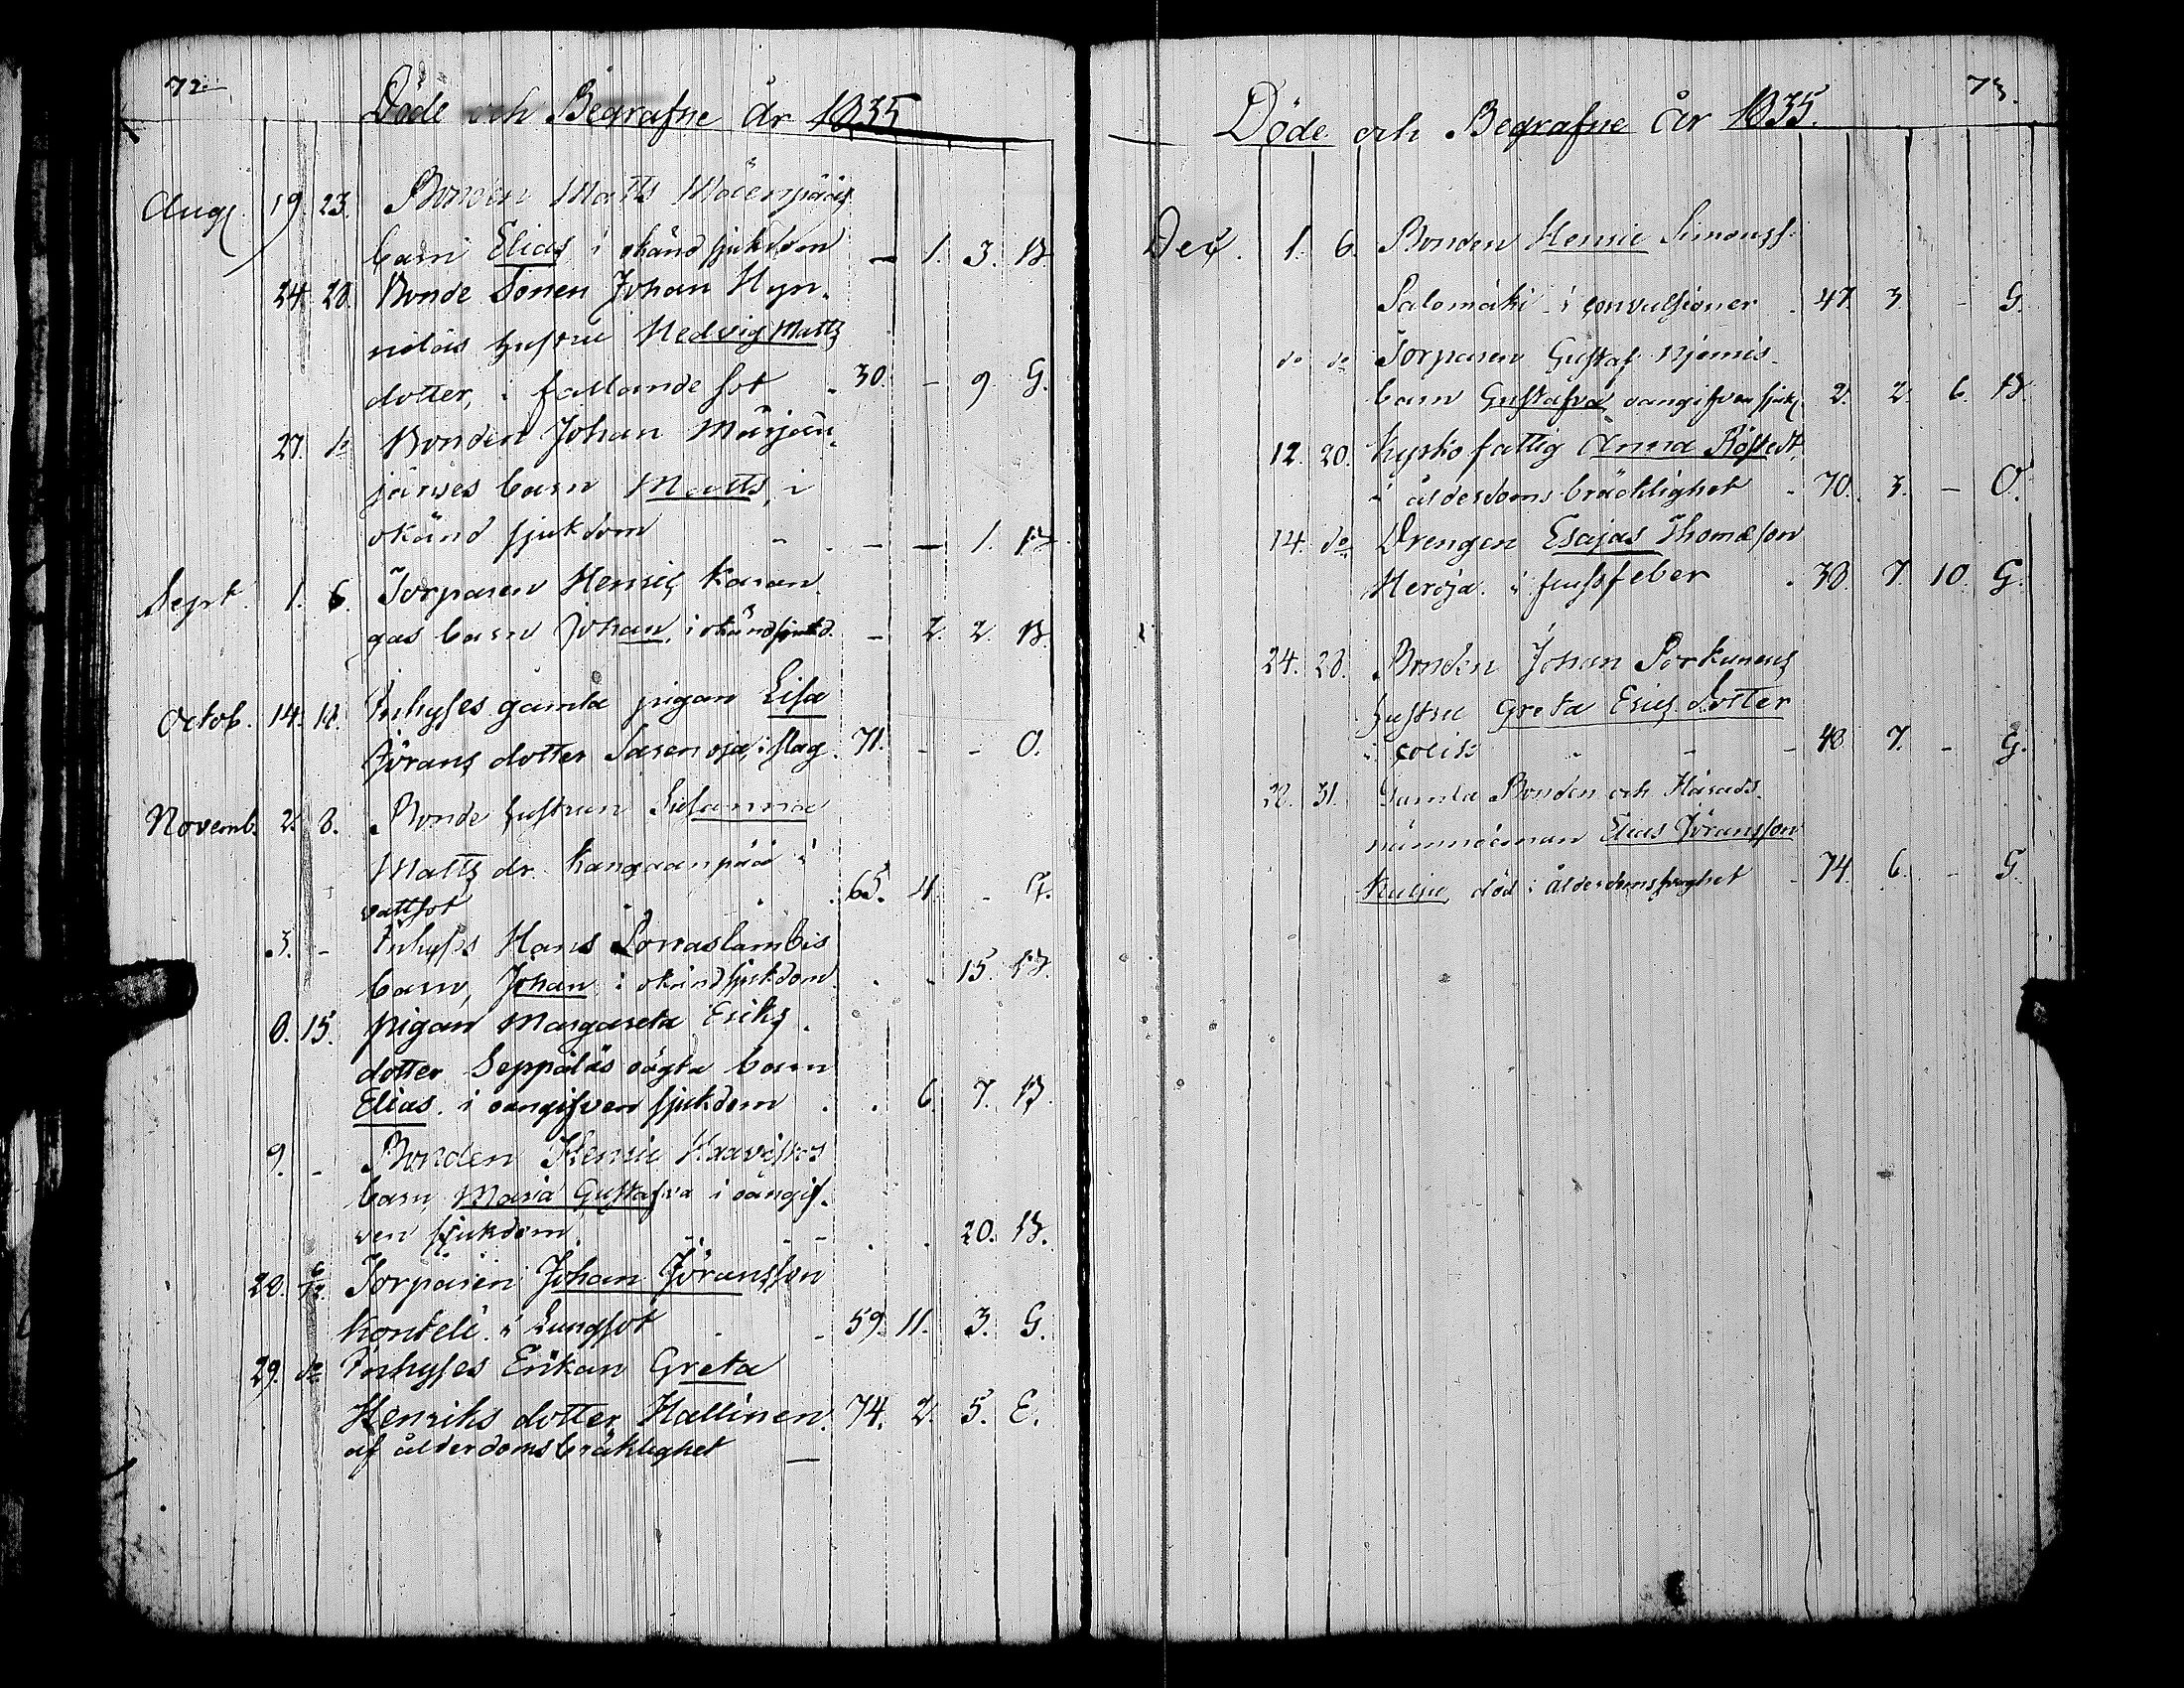 72.
Döde och Begrafne år 1835
Aug. 19. 23. Bonden Matts Mäenpääs
barn Elias i okänd sjukdom — 1. 3. B.
24. 28. Bonde Sonen Johan Hyn-
niläs hustru Hedvig Matts
dotter, i fallande sot 30. – 9 G.
27. do Bonden Johan Marjan-
järwes barn Matts, i
okänd sjukdom – – 1. B.
Sept. 1. 6. Torparen Henric Karan-
gas barn Johan, i okänd sjukd. – 2. 2. B.
Octob. 14. 18. Inhyses gamla pigan Lisa
Jörans dotter Sarenoja, i slag. 71. – – O.
Novemb. 2. 8. Bonde hustrun Susanna
Matts dr. Kangaanpää i
vattsot 65. 4. – G.
3. – Inhyses Hans Lovraslambis
barn, Johan i okänd sjukdom. . – 15. B.
8. 15. Pigan Margareta Eriks-
dotter Seppäläs oägta barn
Elias. i oangifven sjukdom . . 6. 7. B.
9. – Bonden Henric Haavistos
barn, Maria Gustafva i oangif-
ven sjukdom. . . 20. B.
28. 6/12. Torparen Johan Jöransson
Konteli. i Lungsot 59. 11. 3. G.
29. do Inhyses Enkan Greta
Henriks dotter Hallinen. 74. 2. 5. E.
af ålderdomsbräklighet —
73.
Döde och Begrafne år 1835.
Dec. 1. 6. Bonden Henric Simonss.
Salomäki i convulsioner . 47. 3. – G.
do do Torparen Gustaf Njemis-
barn Gustafva oangifven sjukd. 2. 2. 6. B.
12. 20. Kyrko fattig Anna Röstedt,
i ålderdoms bräcklighet . 70. 3. – O.
14. do Drengen Esajas Thomasson
Heroja. i frussfeber . 38. 7. 10. G.
24. 28. Bonden Johan Porkumens
hustru Greta Erics dotter
i colik – – – 48. 7. – G.
28. 31. Gamla Bonden och Härads-
nämndeman Elias Jöransson
Kulju, död i ålderdomssvaghet 74. 6. – G.